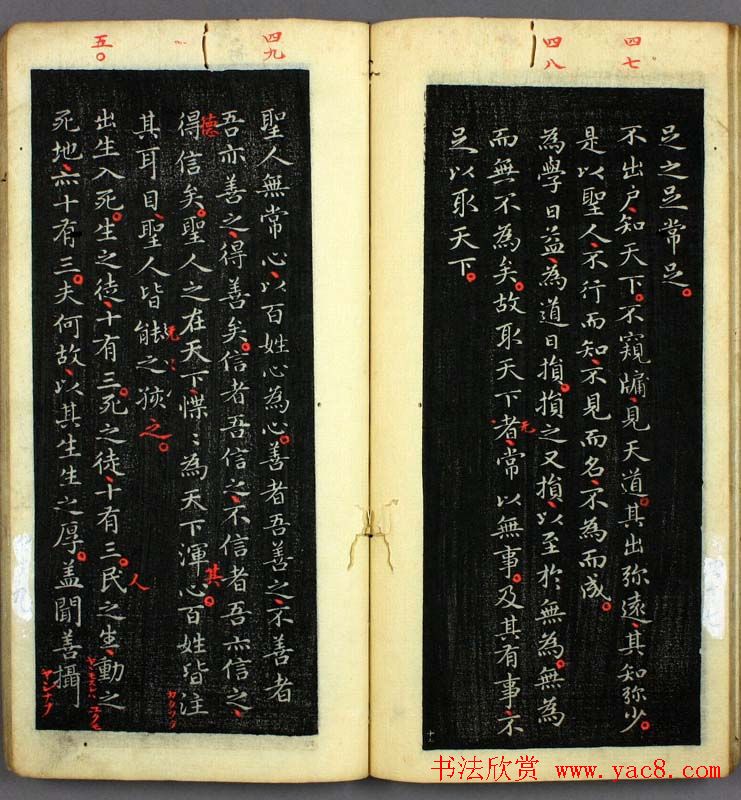 四七
四八
足之足常足。
不出户、知天下。不窺牖、見天道。其出弥遠、其知弥少。
是以聖人、不行而知、不見而名、不為而成。
為學日益、為道日損。損之又損、以至於無為。無為
而無不為矣。故取天下者、常以無事。及其有事、不
足以取天下。
十一
四九
五〇
聖人無常心、以百姓心為心。善者吾善之、不善者
吾亦善之、得善矣。信者吾信之、不信者吾亦信之、
德
得信矣。聖人之在天下、惵〻為天下渾心。百姓皆注
其
其耳目、聖人皆能之孩之。
出生入死。生之徒、十有三。死之徒、十有三。民之生、動之
人
死地、亦十有三。夫何故、以其生生之厚。盖聞善攝
书法欣赏 www.yac8.com